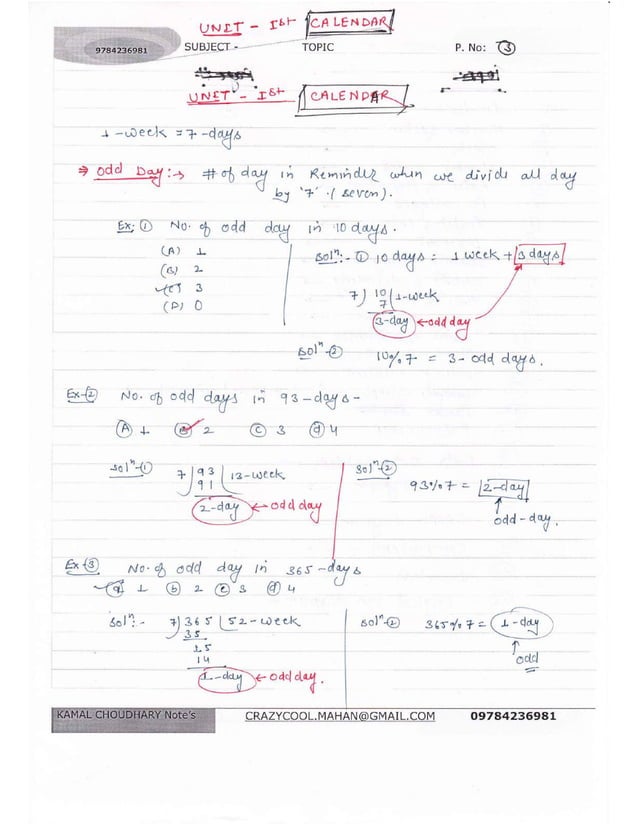 UNIT - Ist CALENDAR
9784236981 SUBJECT - TOPIC P. No: 3
UNIT - Ist CALENDAR
1-week = 7-days
⇒ odd Day :→ # of day in Reminder when we divide all day
by '7' (seven).
Ex: ① No. of odd day in 10 days.
(A) 1
(B) 2
(C) 3
(D) 0
Solⁿ:- ① 10 days = 1 week + 3 days
7) 10 (1-week
7
3-day ← odd day
Solⁿ-②
10%7 = 3-odd days.
Ex-② No. of odd days in 93-days-
Ⓐ 1 Ⓑ 2 Ⓒ 3 ⓓ 4
Solⁿ-① 7) 93 (13-week
91
2-day ← odd day
Solⁿ-②
93%7 = 2-day
↑
odd-day.
Ex-③ No. of odd day in 365-days
ⓐ 1 ⓑ 2 ⓒ 3 ⓓ 4
Solⁿ:- 7) 365 (52-week
35
15
14
1-day ← odd day.
Solⁿ-② 365%7 = 1-day
↑
odd
KAMAL CHOUDHARY Note's CRAZYCOOL.MAHAN@GMAIL.COM 09784236981